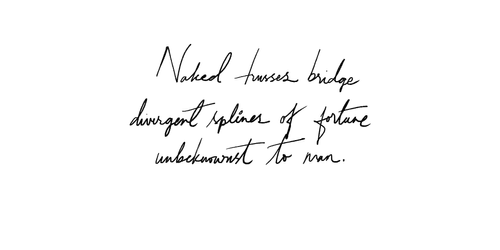 Naked trusses bridge
divergent splines of fortune
unbeknownst to man.